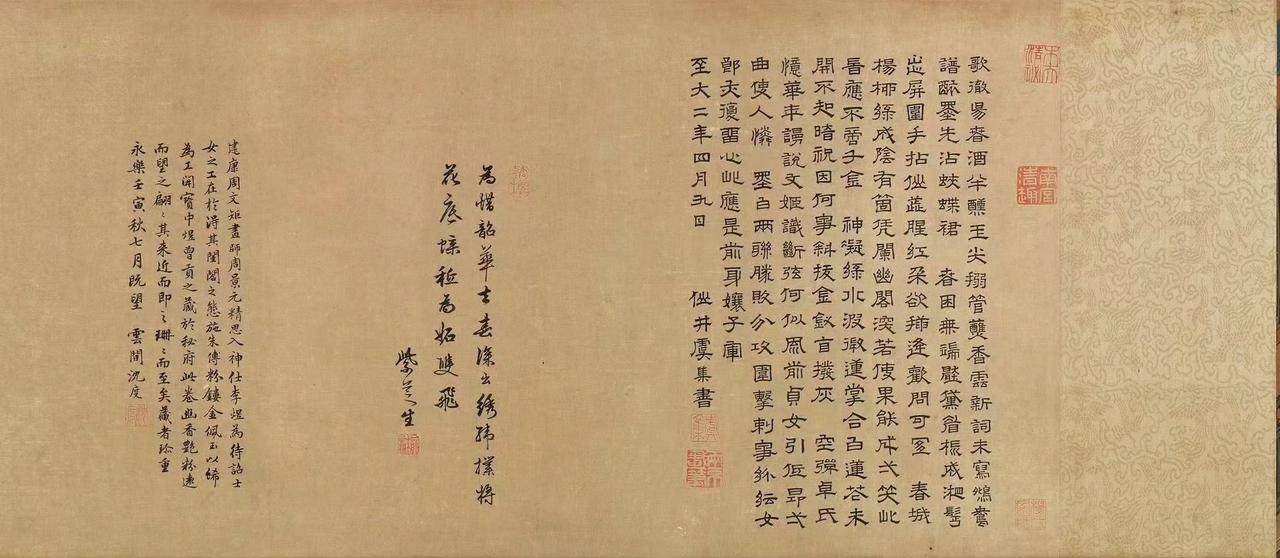 歌徹昜春酒半醺玉尖搦管蘸香雲新詞未寫鴛鴦
譜醉墨先沾蛺蝶裙 春困無端壓黛眉梳成鬢
出屏圍手拈仙蕋腥紅朵欲插逢歡問可宜 春城
楊柳綠成陰有箇凭闌幽閣深若使果能成弌笑此
時應不吝千金 神凝綠水微蓮掌合白蓮花未
開不知暗祝因何事斜拔金釵盲撥灰 空彈卓氏
憶華年謾說文姬識斷弦何似前貞女引低昂弌
曲使人憐 墨白兩聯勝敗分攻圍擊刺事紛紜女
郎夫復留心此應是前身孃子軍
至大二年四月九日 仙井虞集書
為惜韶華去春深出繡幃撲將
花底蝶秪為妬雙飛
紫芝生
建康周文矩畫師周景元精思入神仕李煜為待詔士
女之工在於得其閨閣之態施朱傅粉鏤金佩玉以飾
為工開寶中煜曾貢之藏於秘府此卷幽香艷粉遠
而望之翩〻其來近而即之珊〻而至矣藏者珍重
永樂壬寅秋七月既望 雲間沈度
南宮清趣